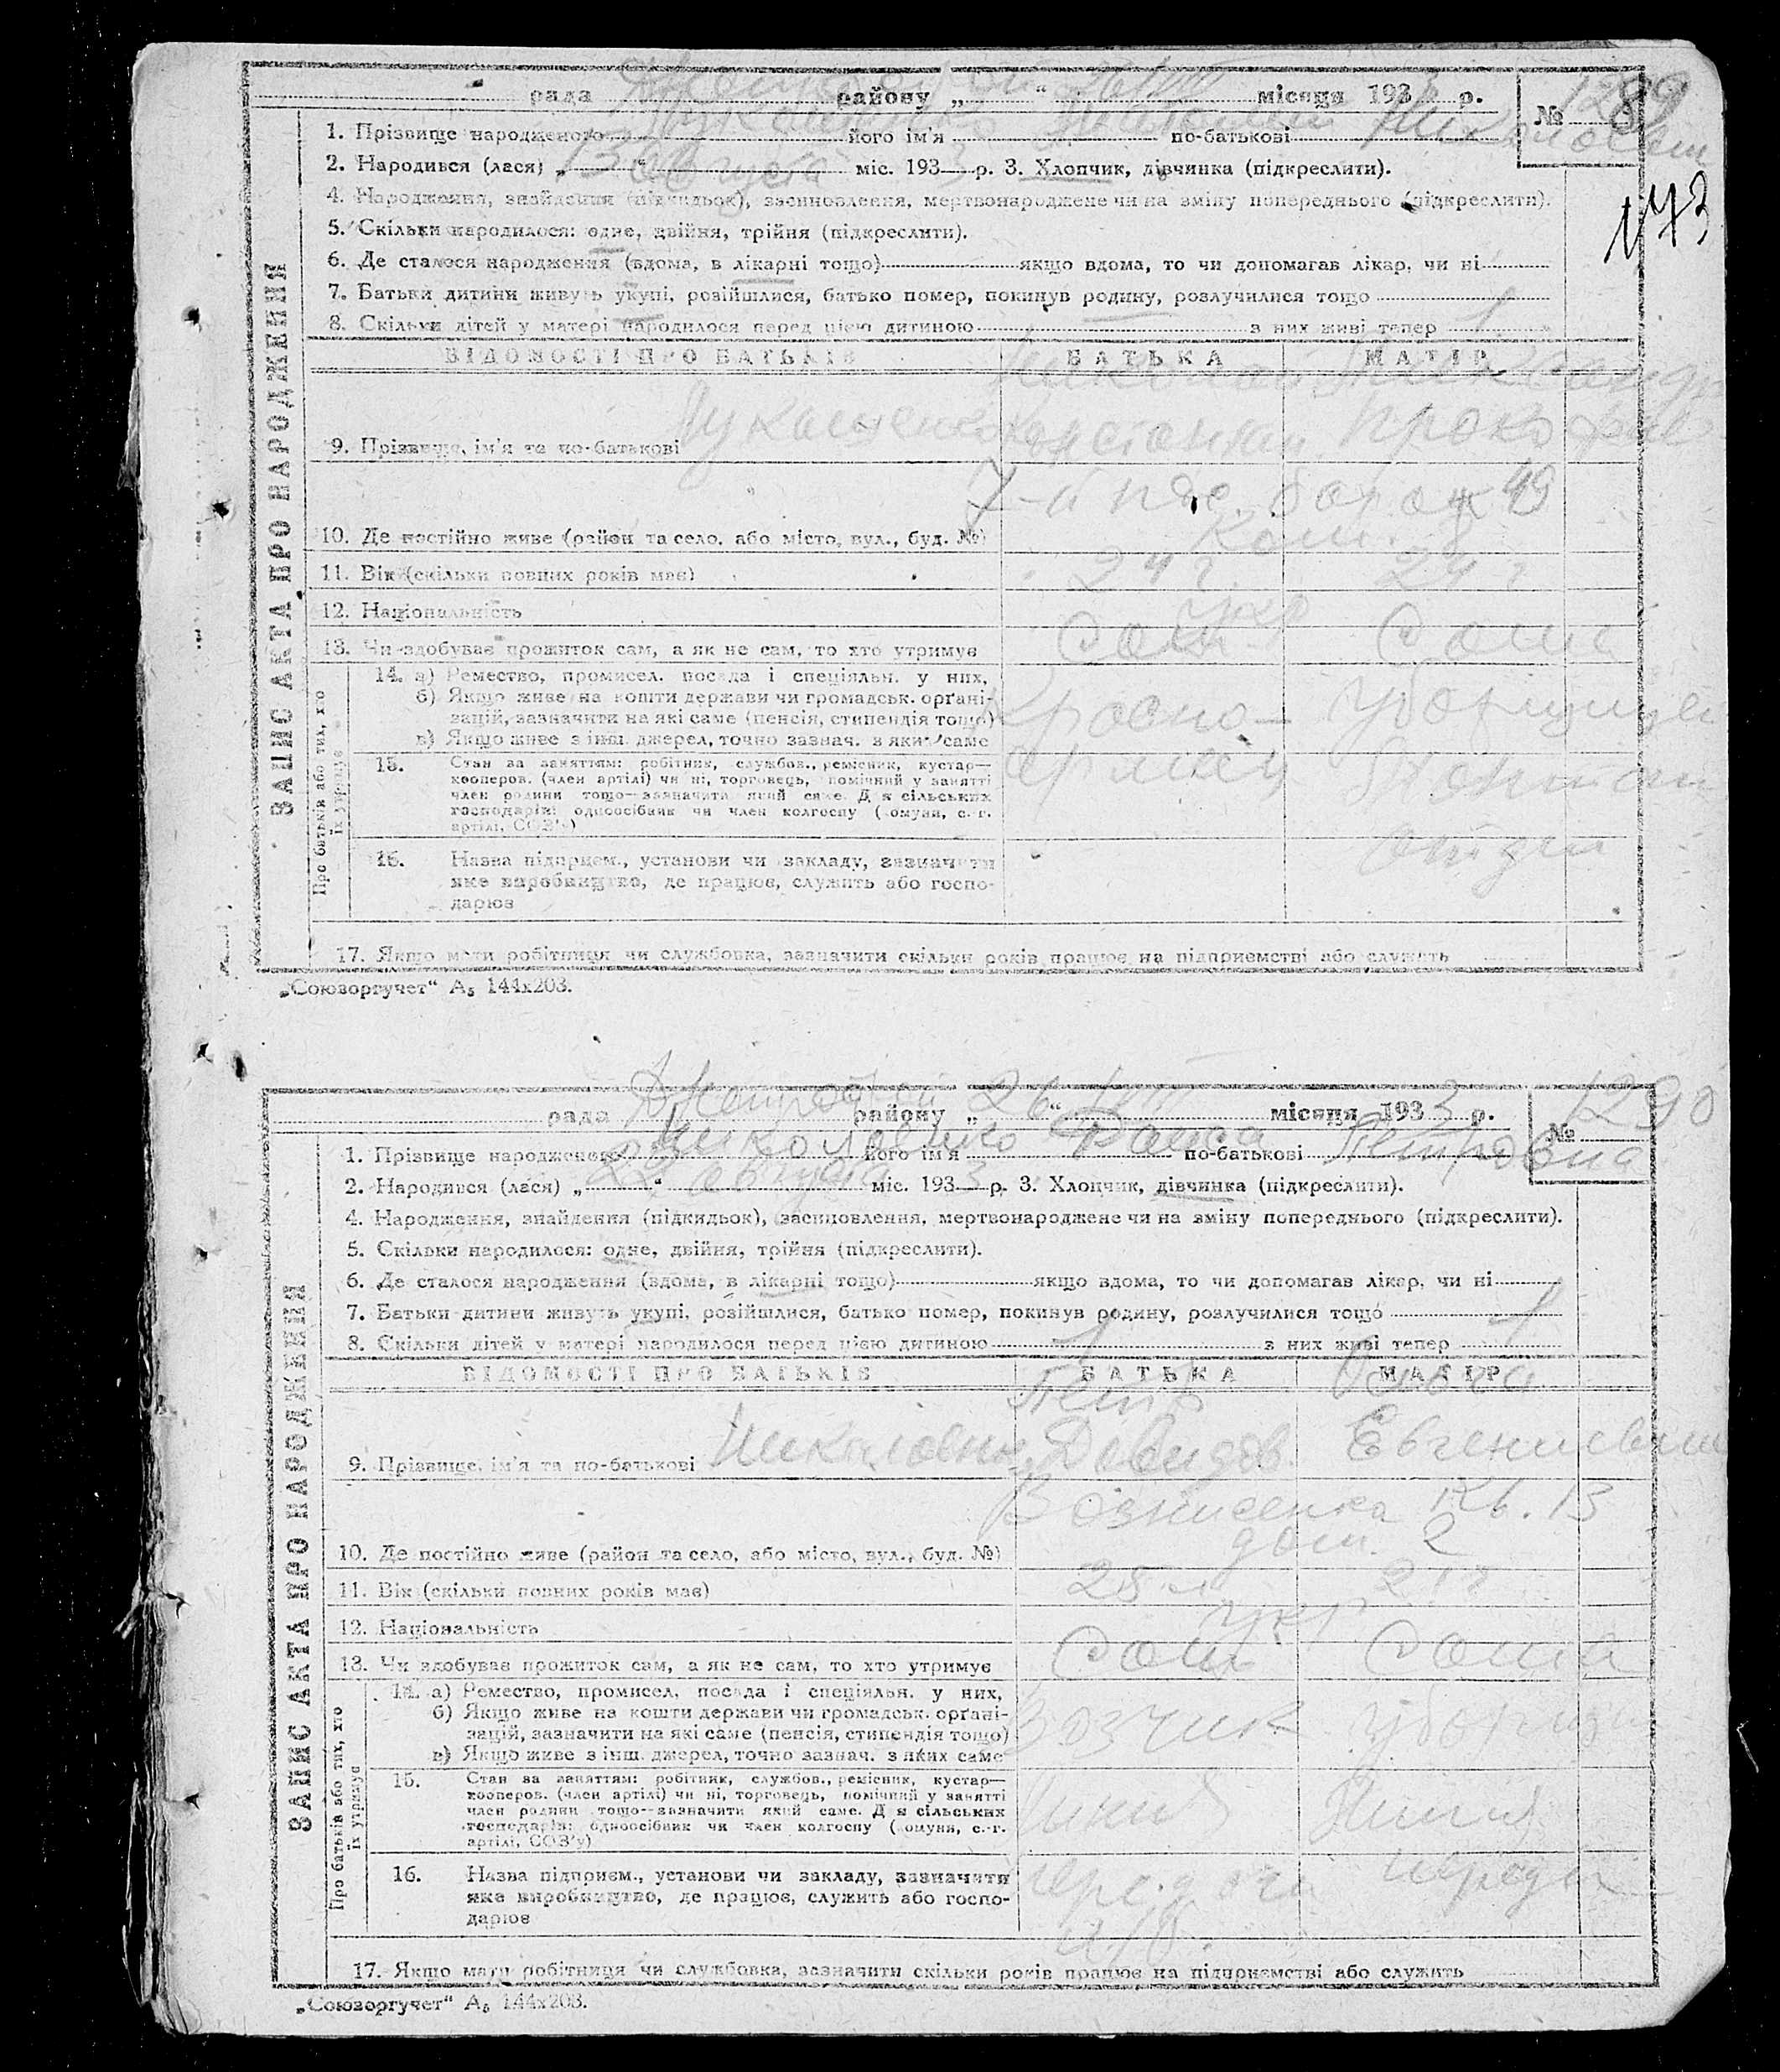 рада району „ “ місяця 193 р. № 1289
1. Прізвище народженого його ім'я по-батькові
2. Народився (лася) „13“ августа міс. 1933 р. 3. Хлопчик, дівчинка (підкреслити).
173
4. Народження, знайдення (підкидьок), засиновлення, мертвонароджене чи на зміну попереднього (підкреслити).
5. Скільки народилося: одне, двійня, трійня (підкреслити).
6. Де сталося народження (вдома, в лікарні тощо) якщо вдома, то чи допомагав лікар, чи ні
7. Батьки дитини живуть укупі, розійшлися, батько помер, покинув родину, розлучилися тощо
8. Скільки дітей у матері народилося перед цією дитиною з них живі тепер 1
ЗАПИС АКТА ПРО НАРОДЖЕННЯ
ВІДОМОСТІ ПРО БАТЬКІВ БАТЬКА МАТІР
Николай
9. Прізвище, ім'я та по-батькові Лукашенко
49
10. Де постійно живе (район та село, або місто, вул., буд. №)
11. Вік (скільки повних років має) 24 г. 24 г
12. Національність укр
13. Чи здобуває прожиток сам, а як не сам, то хто утримує Сам Сама
Про батьків або тих, хто їх утримує
14. а) Ремество, промисел, посада і спеціяльн. у них,
б) Якщо живе на кошти держави чи громадськ. орґані-
зацій, зазначити на які саме (пенсія, стипендія тощо) Красно- Уборщица
в) Якщо живе з інш. джерел, точно зазнач. з яких саме
15. Стан за заняттям: робітник, службов., ремісник, кустар—
кооперов. (член артілі) чи ні, торговець, помічний у занятті
член родини тощо—зазначити який саме. Для сільських
господарів: одноосібник чи член колгоспу (комуни, с.-г.
артілі, СОЗ'у)
16. Назва підприєм., установи чи закладу, зазначити
яке виробництво, де працює, служить або госпо-
дарює
17. Якщо мати робітниця чи службовка, зазначити скільки років працює на підприємстві або служить
„Союзоргучет“ А₅ 144х203.
рада району „26“ VIII місяця 1933 р. № 1290
1. Прізвище народженого Николаенко його ім'я Раиса по-батькові Петровна
2. Народився (лася) „22“ августа міс. 1933 р. 3. Хлопчик, дівчинка (підкреслити).
4. Народження, знайдення (підкидьок), засиновлення, мертвонароджене чи на зміну попереднього (підкреслити).
5. Скільки народилося: одне, двійня, трійня (підкреслити).
6. Де сталося народження (вдома, в лікарні тощо) якщо вдома, то чи допомагав лікар, чи ні
7. Батьки дитини живуть укупі, розійшлися, батько помер, покинув родину, розлучилися тощо
8. Скільки дітей у матері народилося перед цією дитиною 1 з них живі тепер 1
ЗАПИС АКТА ПРО НАРОДЖЕННЯ
ВІДОМОСТІ ПРО БАТЬКІВ БАТЬКА МАТІР
Петр
9. Прізвище, ім'я та по-батькові Давидов.
Вознисенка кв. 13
10. Де постійно живе (район та село, або місто, вул., буд. №) дом. 2
11. Вік (скільки повних років має) 25 л
12. Національність укр
13. Чи здобуває прожиток сам, а як не сам, то хто утримує Сам Сама
Про батьків або тих, хто їх утримує
14. а) Ремество, промисел, посада і спеціяльн. у них,
б) Якщо живе на кошти держави чи громадськ. орґані-
зацій, зазначити на які саме (пенсія, стипендія тощо)
в) Якщо живе з інш. джерел, точно зазнач. з яких саме
15. Стан за заняттям: робітник, службов., ремісник, кустар—
кооперов. (член артілі) чи ні, торговець, помічний у занятті
член родини тощо—зазначити який саме. Для сільських
господарів: одноосібник чи член колгоспу (комуни, с.-г.
артілі, СОЗ'у)
16. Назва підприєм., установи чи закладу, зазначити
яке виробництво, де працює, служить або госпо-
дарює
17. Якщо мати робітниця чи службовка, зазначити скільки років працює на підприємстві або служить
„Союзоргучет“ А₅ 144х203.